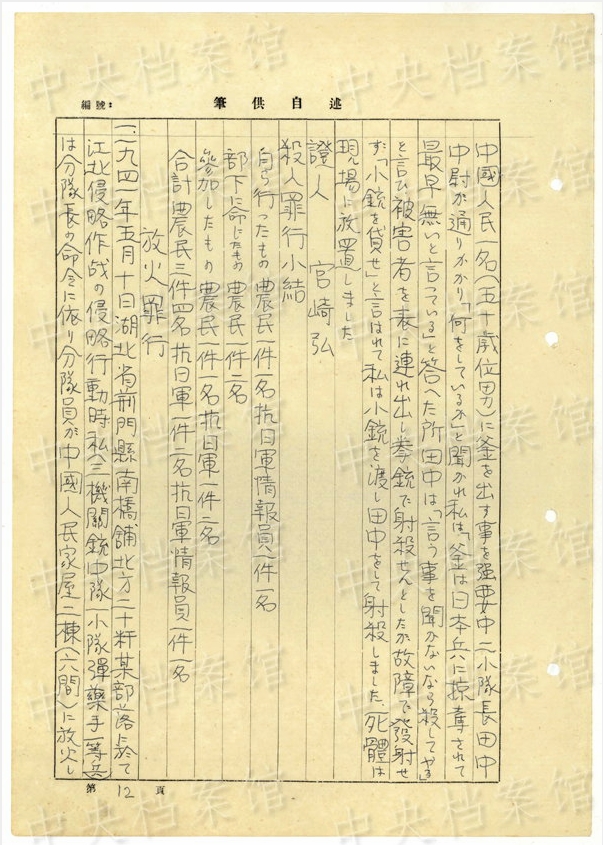 編號：
述自供筆
中國人民一名(五十歳位男)に釜を出す事を強要中二小隊長田中
中尉が通りかかり「何をしているか」と聞かれ私は、「釜は日本兵に掠奪されて
最早無いと言っている」と答へた所田中は、「言う事を聞かないなら殺してやる」
と言ひ被害者を表に連れ出し拳銃で射殺せんとしたが故障で發射せ
ず「小銃を貸せ」と言はれて私は小銃を渡し田中をして射殺しました、死體は
現場に放置しました
證人　宮崎弘
殺人罪行小結
自ら行ったもの農民一件一名抗日軍情報員一件一名
部下に命じたもの農民一件一名
參加したもの農民一件一名抗日軍一件一名
合計農民三件四名抗日軍一件二名抗日軍情報員一件一名
放火罪行
一、一九四一年五月十日湖北省荊門縣南橋舗北方二十粁某部落に於て
江北侵略作戰の侵略行動時私(三機關銃中隊一小隊彈藥手一等兵)
は分隊長の命令に依り分隊員が中國人民家屋二棟(六間)に放火し
第12頁
中央档案馆